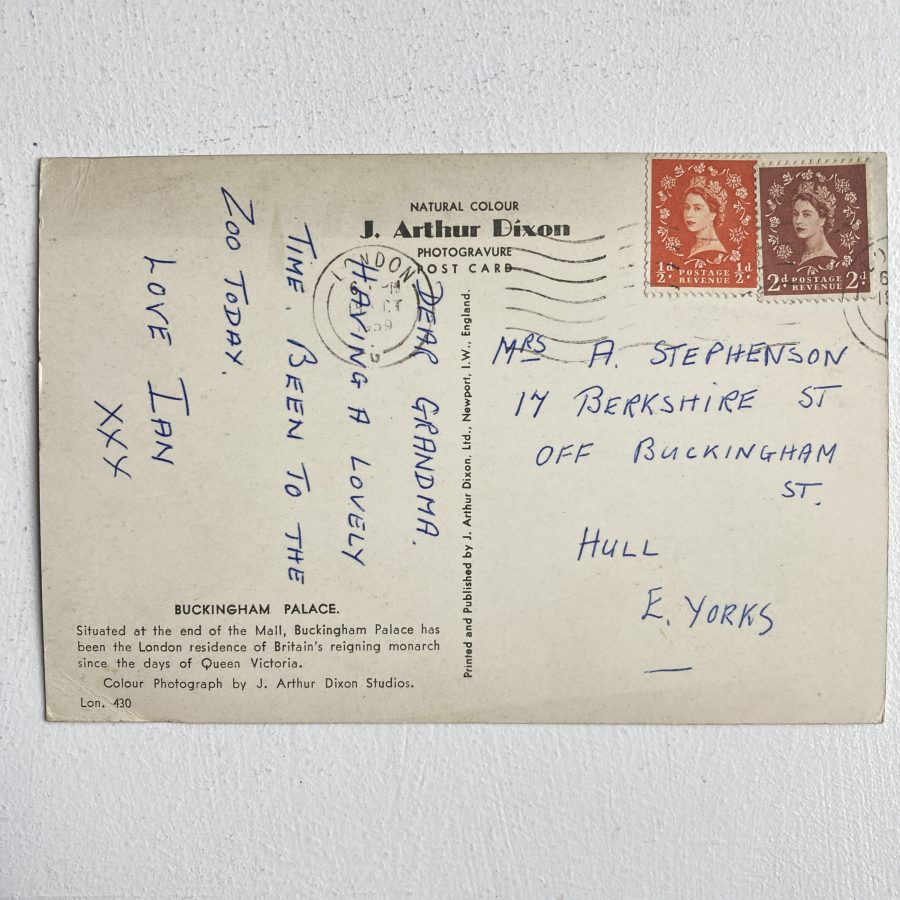 NATURAL COLOUR
J. Arthur Dixon
PHOTOGRAVURE
POST CARD
DEAR GRANDMA.
HAVING A LOVELY
TIME. BEEN TO THE
ZOO TODAY.
LOVE IAN
XXX
BUCKINGHAM PALACE.
Situated at the end of the Mall, Buckingham Palace has
been the London residence of Britain's reigning monarch
since the days of Queen Victoria.
Colour Photograph by J. Arthur Dixon Studios.
Lon. 430
Printed and Published by J. Arthur Dixon, Ltd., Newport, I.W., England.
LONDON
½d. POSTAGE ½d.
REVENUE
2d. POSTAGE 2d.
REVENUE
MRS A. STEPHENSON
17 BERKSHIRE ST
OFF BUCKINGHAM
ST.
HULL
E. YORKS